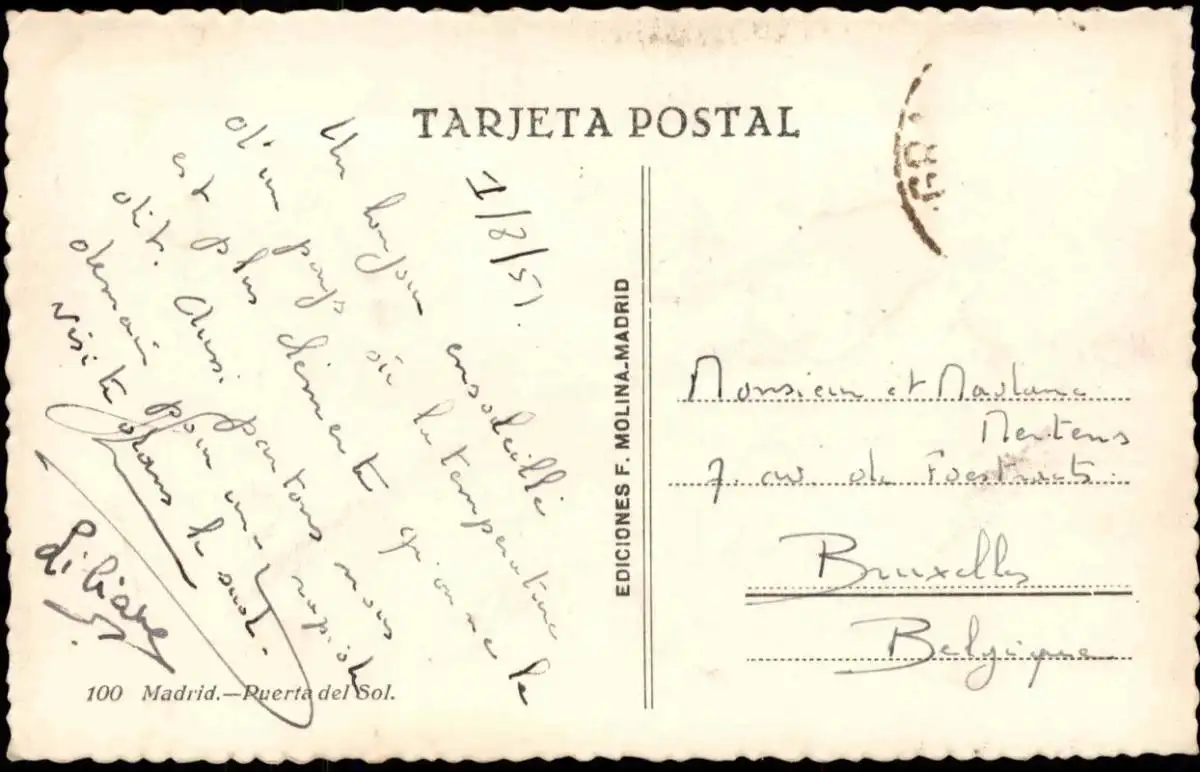 TARJETA POSTAL
1/8/51.
Un bonjour ensoleillé
d'un pays où la température
est plus clémente qu'on ne le
dit. Aussi partons nous
demain pour une rapide
visite dans le sud.
Liliane
100 Madrid.—Puerta del Sol.
EDICIONES F. MOLINA-MADRID
Monsieur et Madame
Mertens
7. av. de Foestraets
Bruxelles
Belgique